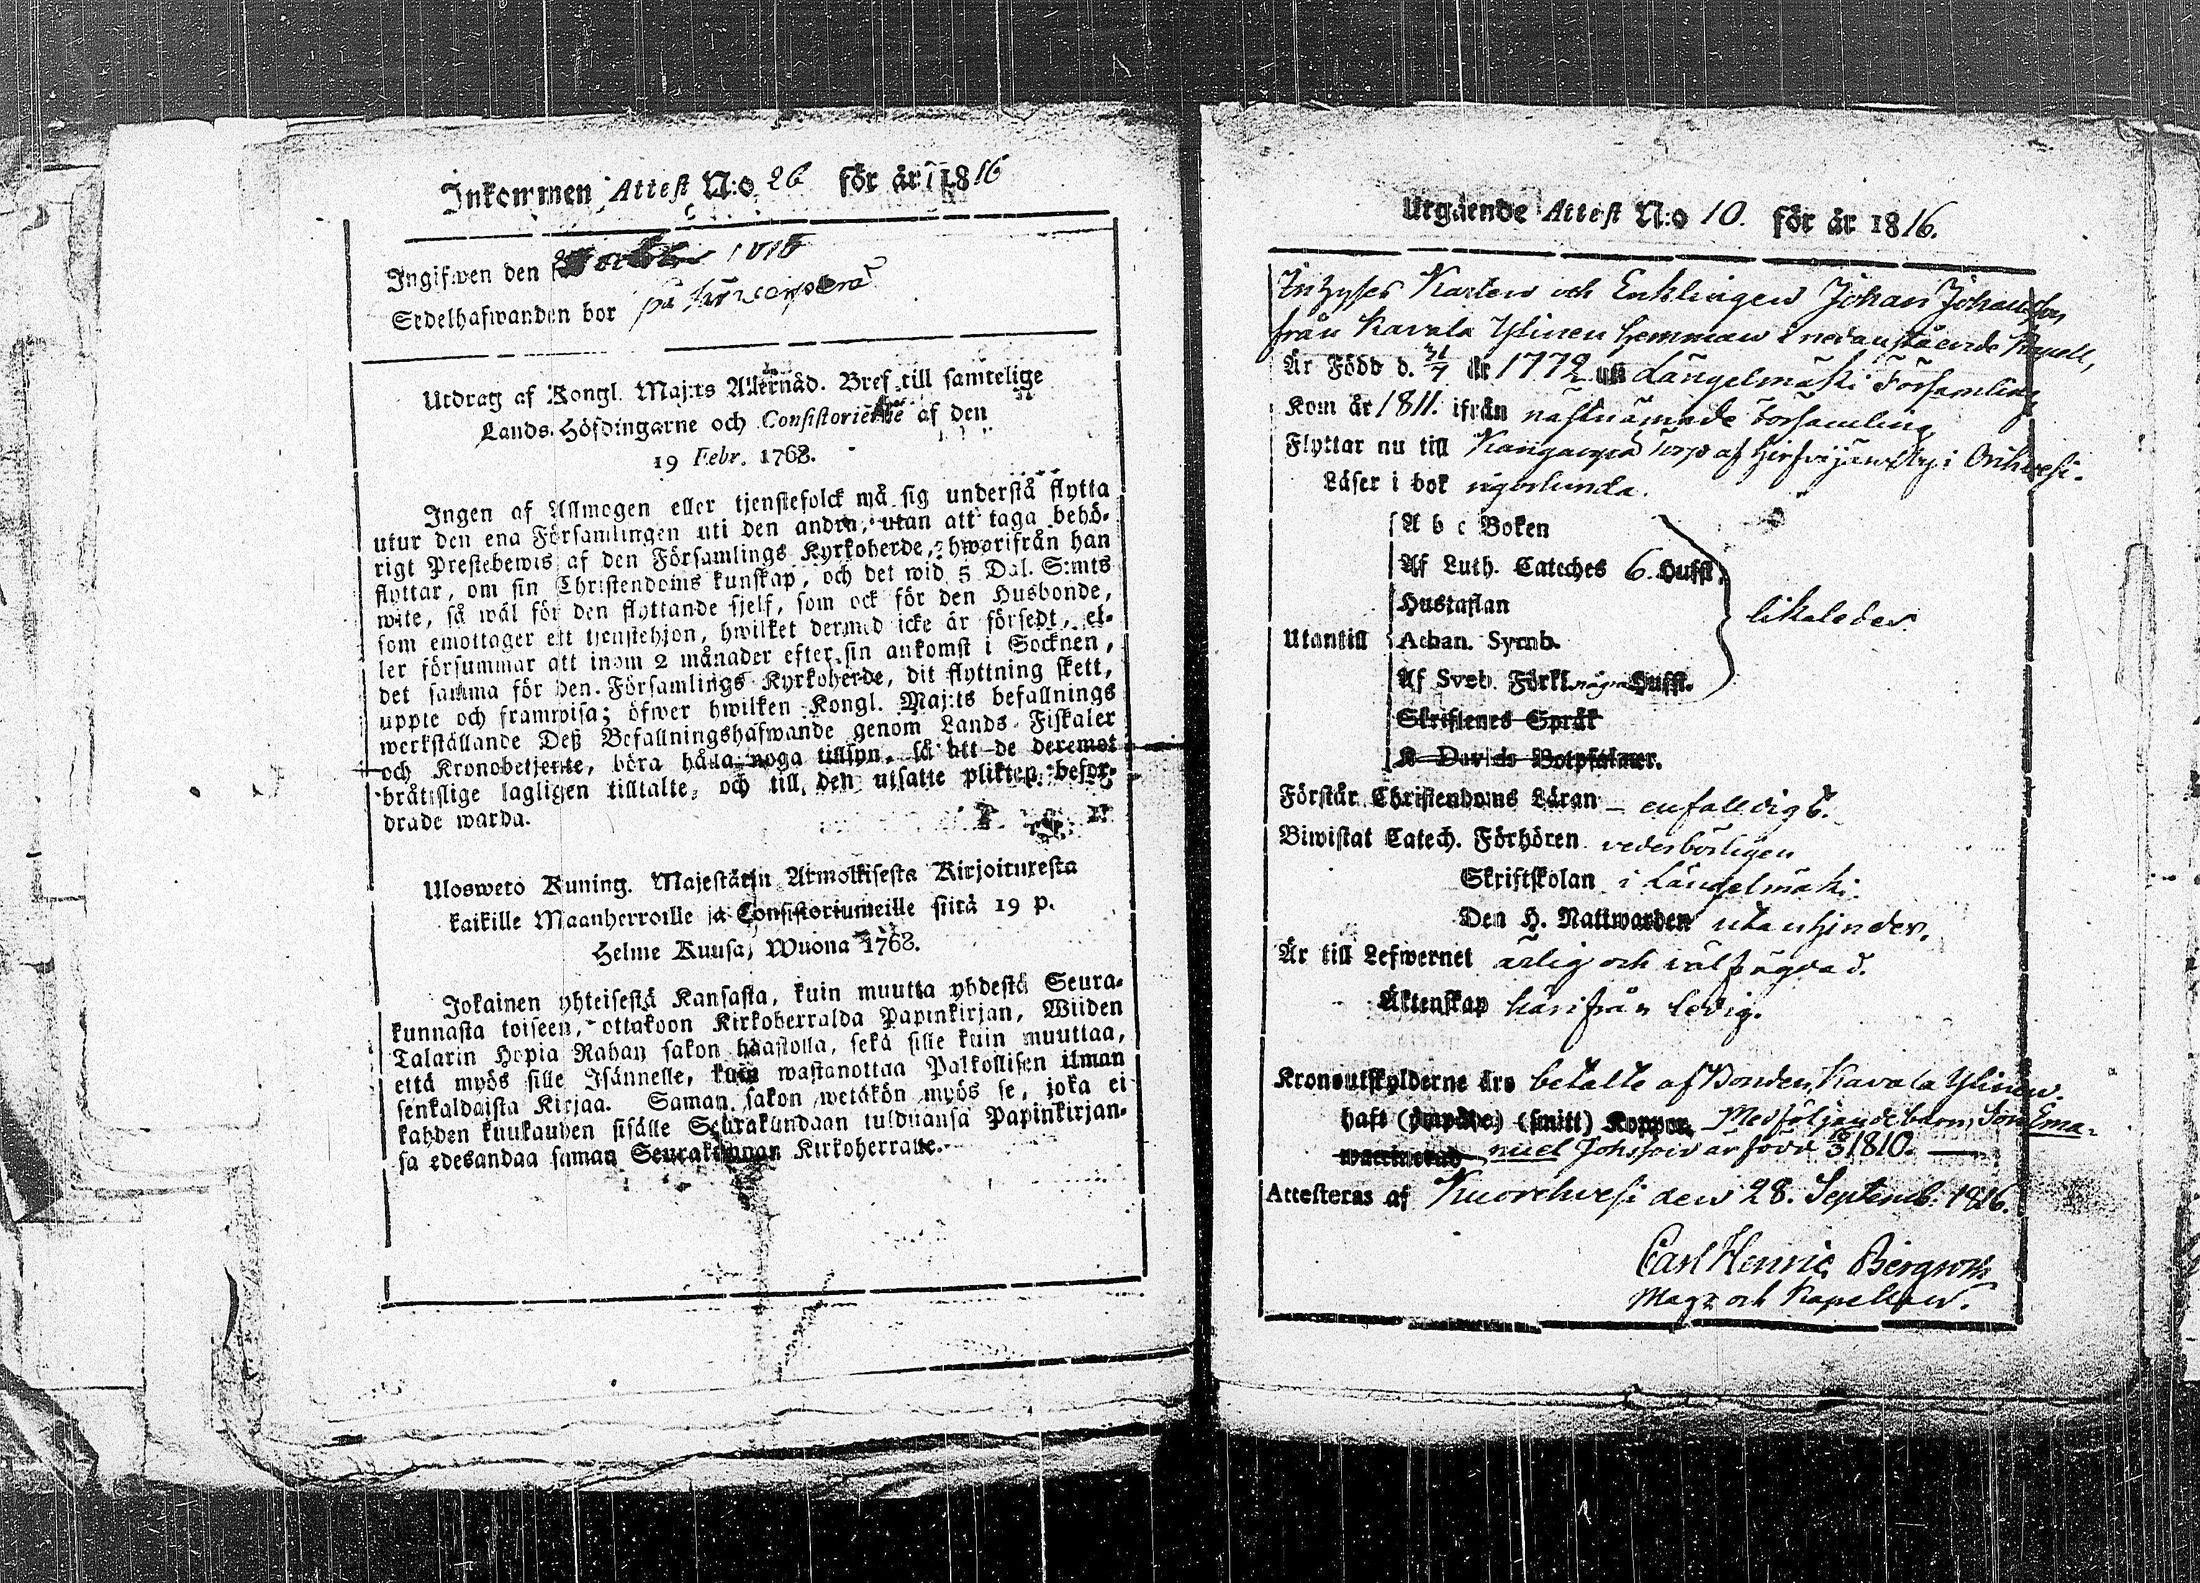 Inkommen Attest N:o 26 för år 1816
Ingifwen den 1816
Sedelhafwanden bor på
Utdrag af Kongl. Maj:ts Allernåd. Bref till samtelige
Lands-Höfdingarne och Consistorierne af den
19 Febr. 1768.
Ingen af Allmogen eller tjenstefolck må sig understå flytta
utur den ena Församlingen uti den andra, utan att taga behö-
rigt Prestebewis af den Församlings Kyrkoherde, hwarifrån han
flyttar, om sin Christendoms kunskap, och det wid 5 Dal. S:mts
wite, så wäl för den flyttande sjelf, som ock för den Husbonde,
som emottager ett tjenstehjon, hwilket dermed icke är försedt, el-
ler försummar att inom 2 månader efter sin ankomst i Socknen,
det samma för den Församlings Kyrkoherde, dit flyttning skett,
uppte och framwisa; öfwer hwilken Kongl. Maj:ts befallnings
werkställande Deß Befallningshafwande genom Lands-Fiskaler
och Kronobetjente, böra hålla noga tillsyn, så att de deremot
bråtslige lagligen tilltalte, och till den utsatte plikten befor-
drade warda.
Ulosweto Kuning. Majestätin Armollisesta Kirjoituxesta
kaikille Maanherroille ja Consistoriumeille siitä 19 p.
Helme Kuusa, Wuona 1768.
Jokainen yhteisestä Kansasta, kuin muutta yhdestä Seura-
kunnasta toiseen, ottakoon Kirkoherralda Papinkirjan, Wiiden
Talarin Hopia Rahan sakon haastolla, sekä sille kuin muuttaa,
että myös sille Isännelle, kuin wastanottaa Palkollisen ilman
senkaldaista Kirjaa. Saman sakon wetäkön myös se, joka ei
kahden kuukauden sisälle Seurakundaan tulduansa Papinkirjan-
sa edesandaa saman Seurakunnan Kirkoherralle.
Utgående Attest N:o 10. för år 1816.
Inhyses Karlen och Enklingen Johan Johansson
från Kavala Ylinen hemman i nedanstående Kapell,
Är Född d. 31/7 år 1772 uti Längelmäki Församling
Kom år 1811. ifrån nästnämnde Församling
Flyttar nu till Kangas Torp af Hirsijärvi By i Orihvesi.
Läser i bok någorlunda.
A b c Boken
Af Luth. Cateches 6. Hufst.
Hustaflan
Utantill Athan. Symb. likaledes
Af Sveb. Förkl. några Hufst.
Skriftenes Språk
K Davids Botpsalmer.
Förstår Christendoms Läran - enfalldigt.
Biwistat Catech. Förhören vederbörligen
Skriftskolan i Längelmäki.
Den H. Nattwarden utan hinder.
Är till Lefwernet ärlig och välfrägdad.
Äktenskap härifrån ledig.
Kronoutskylderne äro betalte af Bonden Kavala Ylinen.
haft (ympade) (smitt) Koppor, Medföljande barn, Son Ema-
vaccinerad nuel Johsson är född 18/3 1810.
Attesteras af Kuorehvesi den 28. Septemb. 1816.
Carl Henric Bergroth
Mag. och Kapellan.